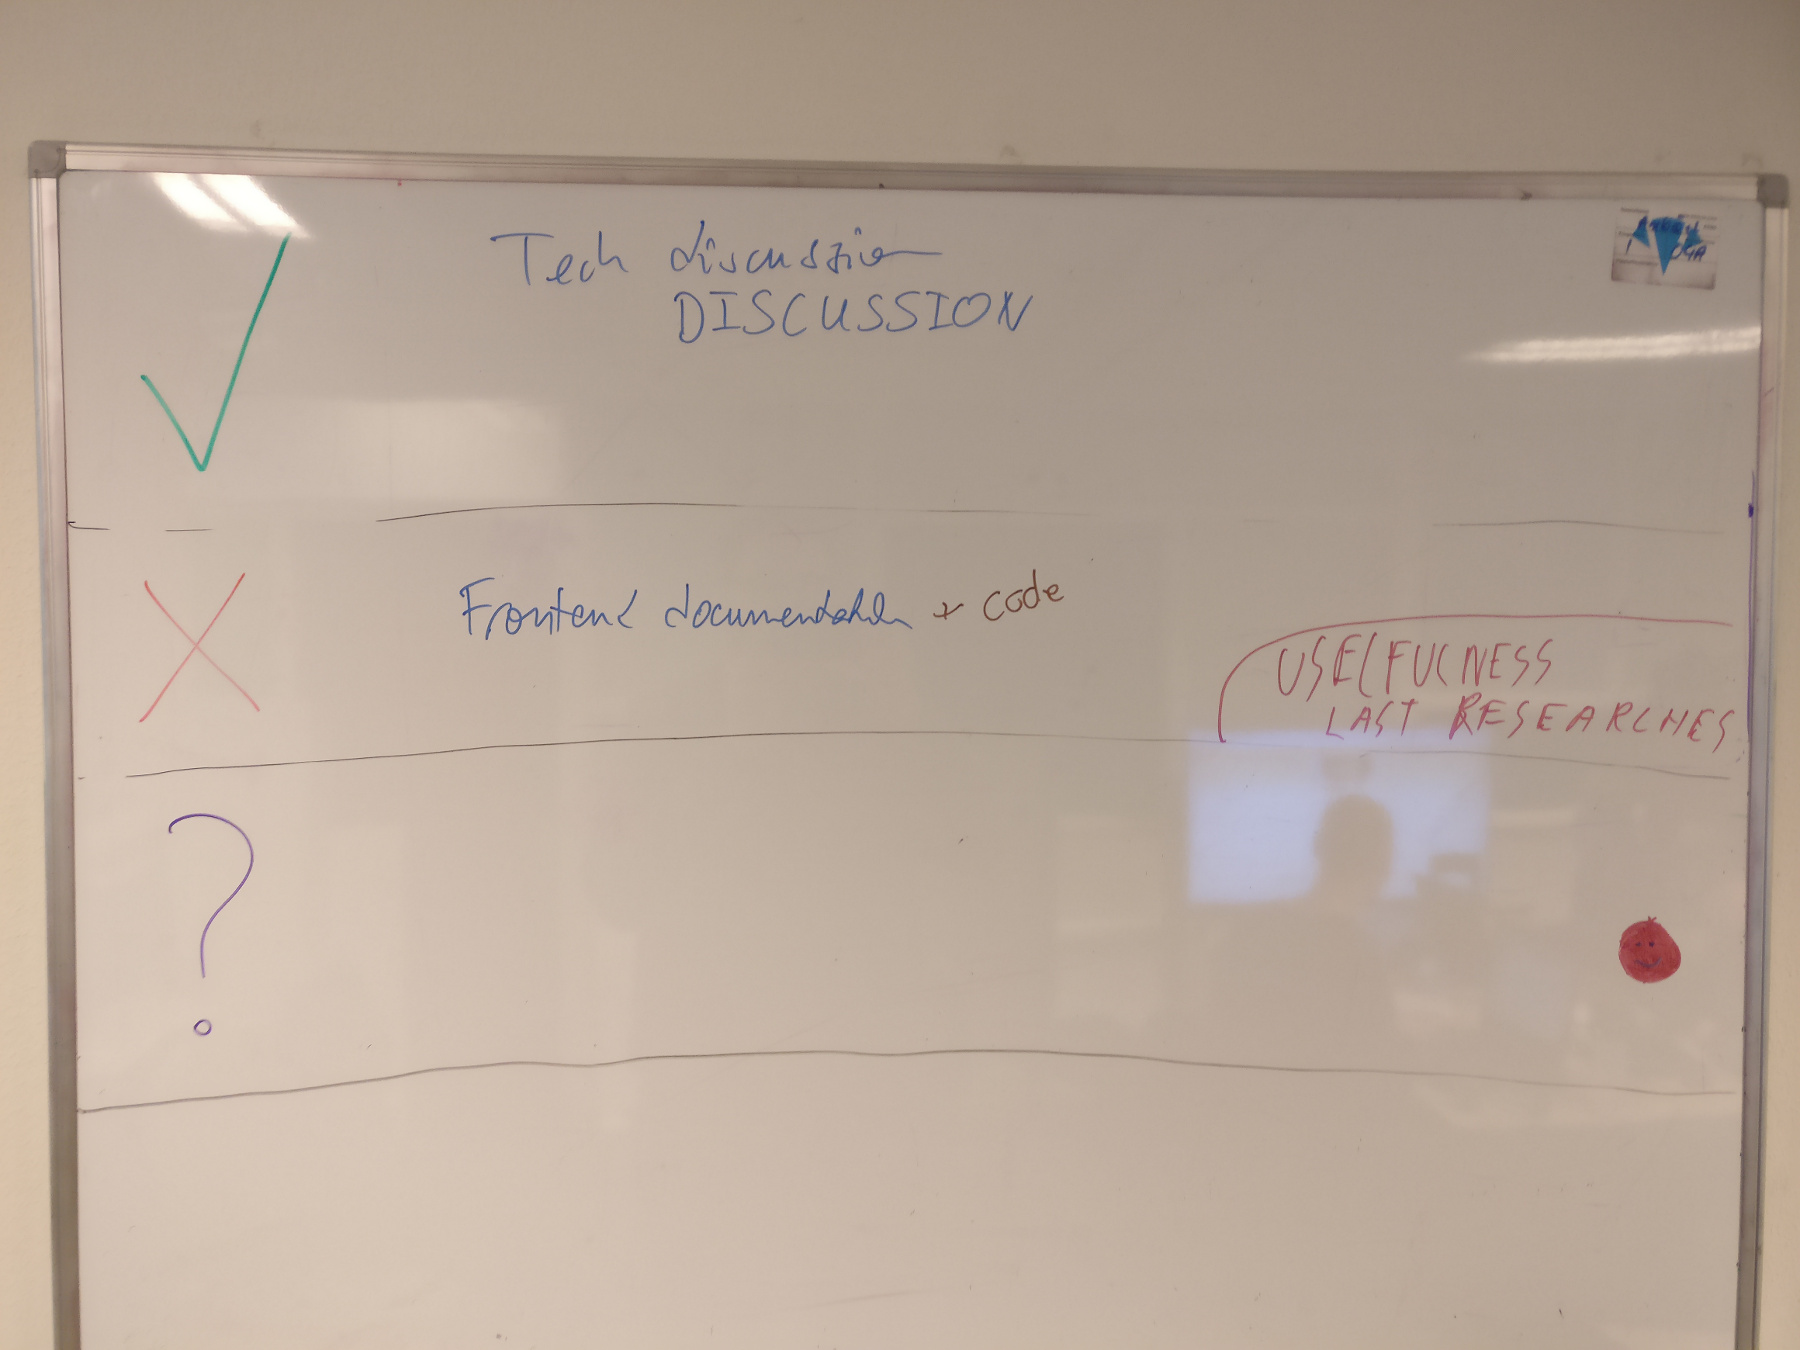 Tech discussion
DISCUSSION
Frontend documentation + code
USELFULNESS
LAST RESEARCHES
?